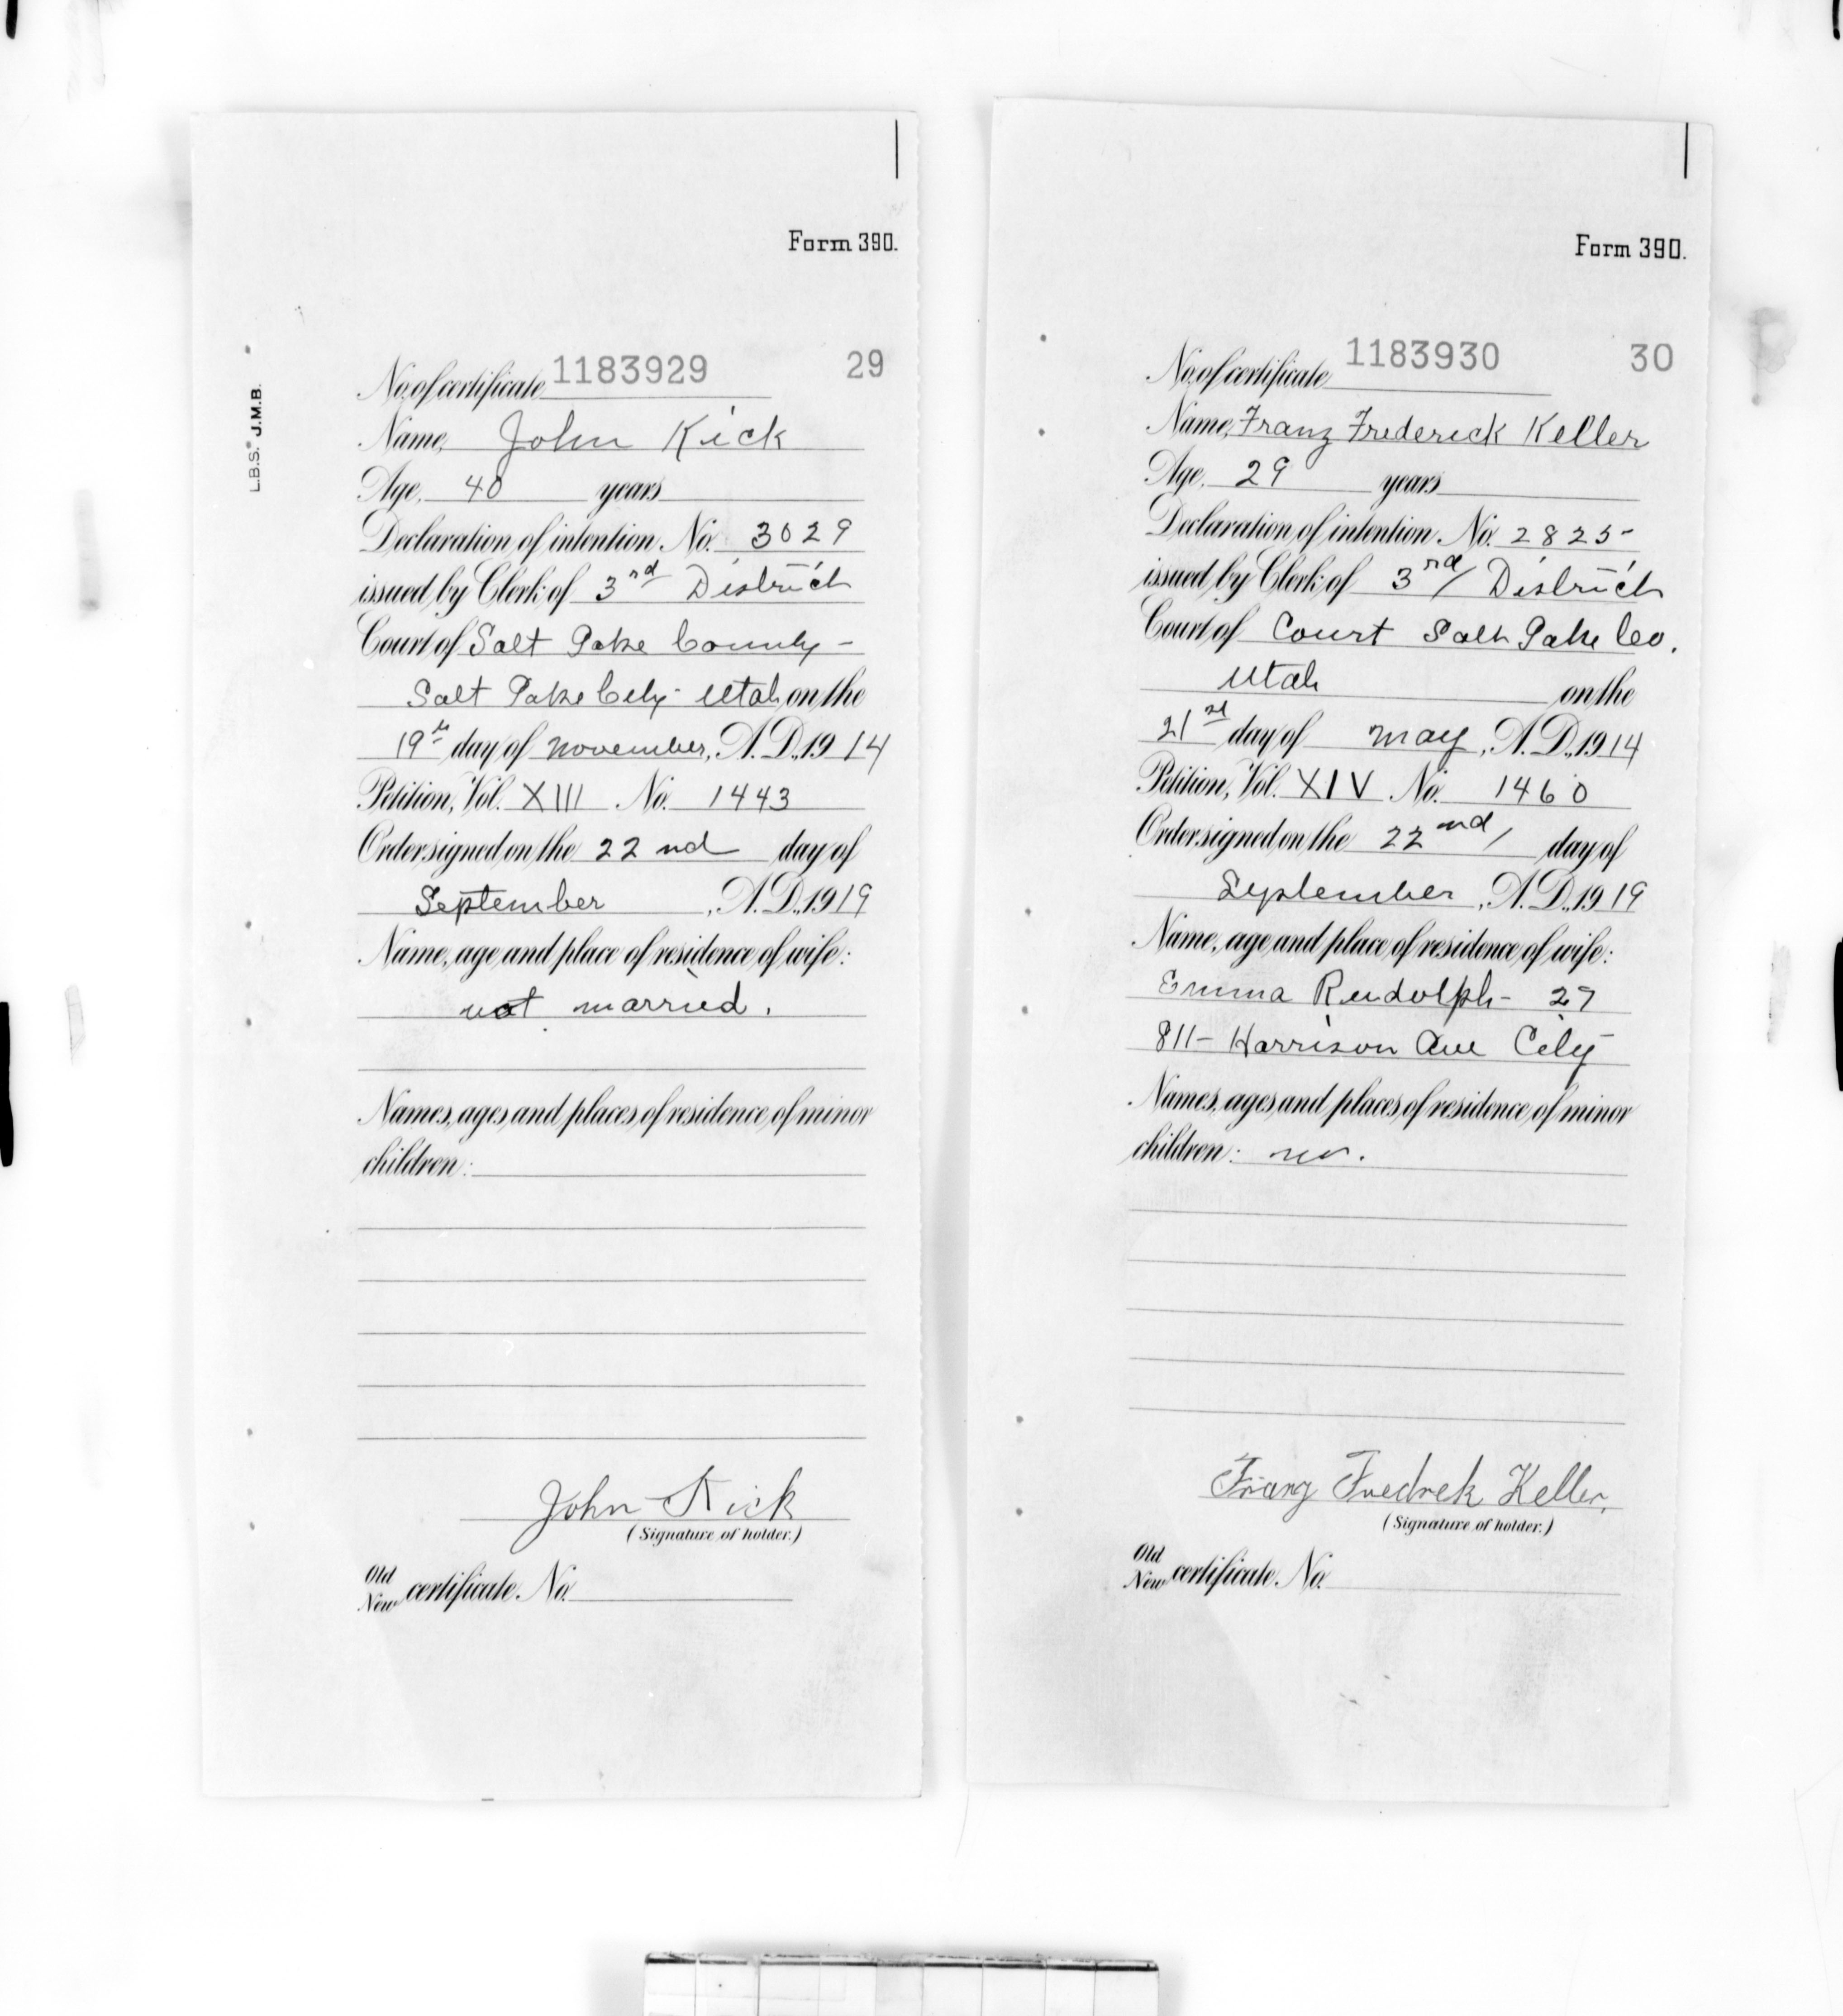 Form 390.
L.B.S. J.M.B.
No. of certificate 1183929 29
Name, John Kick
Age, 40 years
Declaration of intention No. 3029
issued by Clerk of 3rd District
Court of Salt Lake County -
Salt Lake City - Utah on the
19th day of November, A.D., 1914
Petition, Vol. XIII No. 1443
Order signed on the 22nd day of
September, A.D., 1919
Name, age and place of residence of wife:
not married.
Names, ages and places of residence of minor
children:
John Kick
(Signature of holder.)
Old
New certificate No.
Form 390.
No. of certificate 1183930 30
Name, Franz Frederick Keller
Age, 29 years
Declaration of intention No. 2825-
issued by Clerk of 3rd District
Court of Court Salt Lake Co.
Utah on the
21st day of May, A.D., 1914
Petition, Vol. XIV No. 1460
Order signed on the 22nd day of
September, A.D., 1919
Name, age and place of residence of wife:
Emma Rudolph - 27
811 - Harrison Ave City
Names, ages and places of residence of minor
children: no.
Franz Fredrek Keller,
(Signature of holder.)
Old
New certificate No.